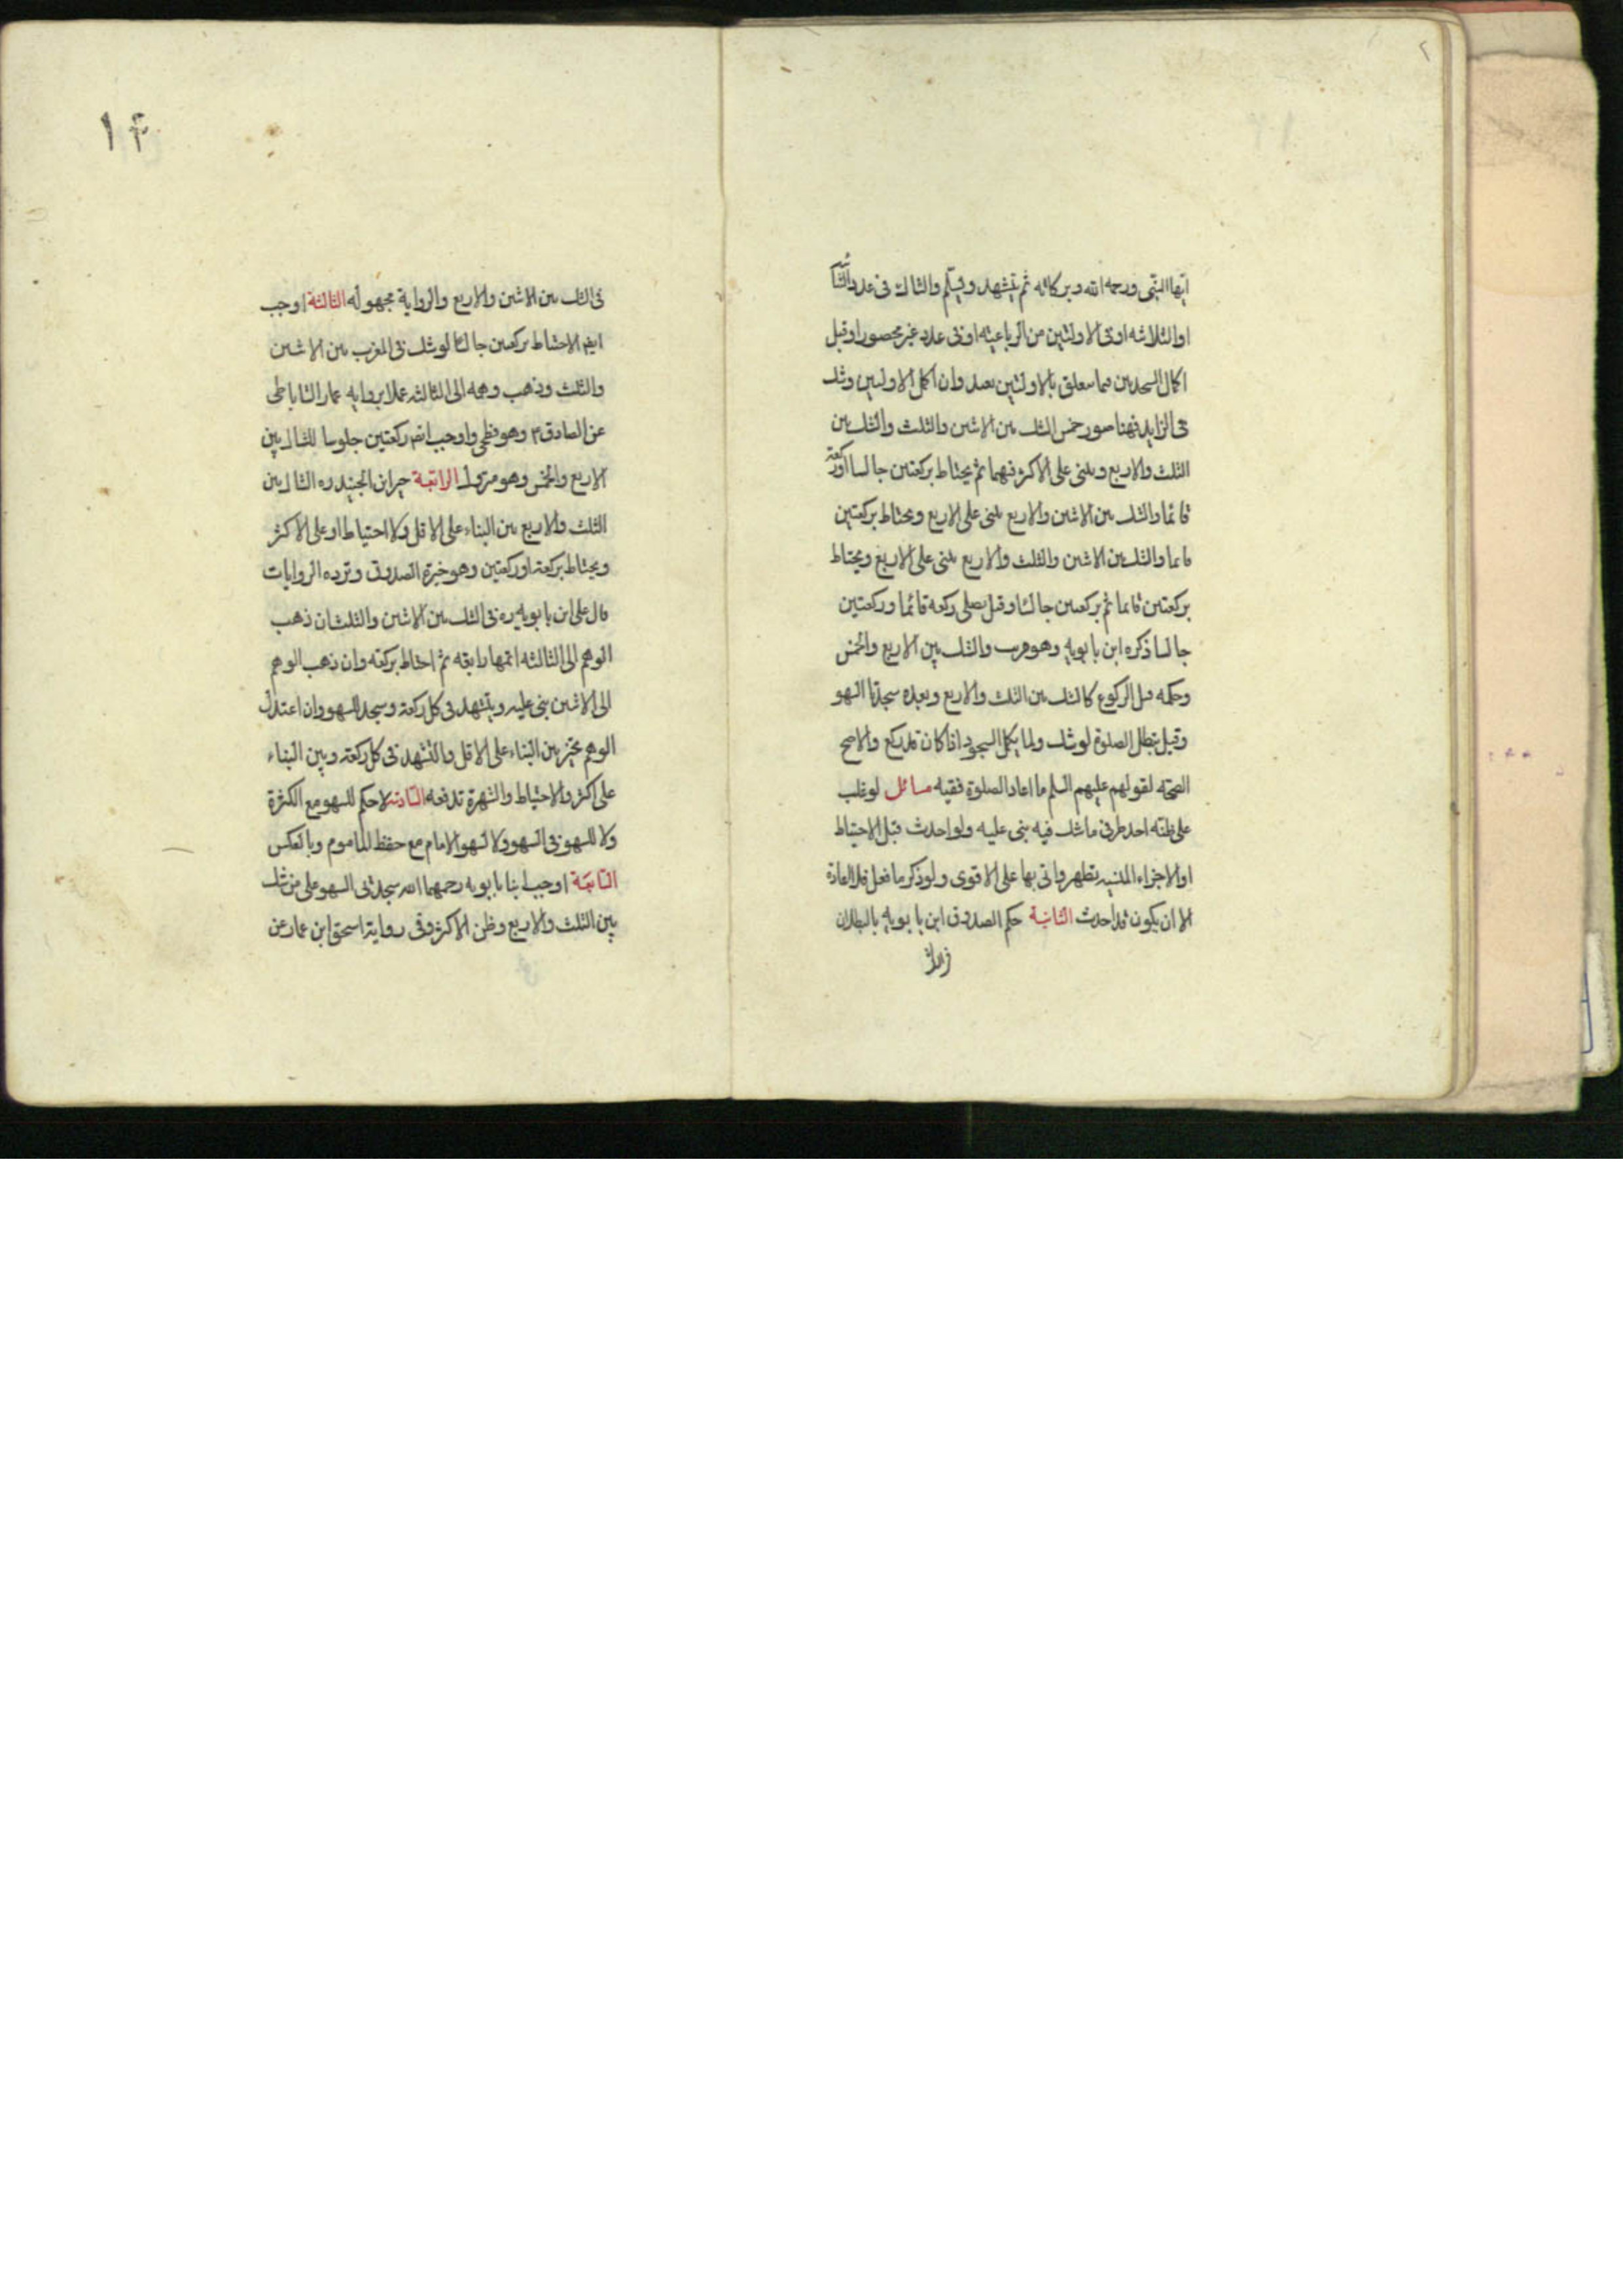 ايها النبى ورحمه الله وبركاته ثم يتشهد ويسلم والثالث فى عدد الثنائيه
او الثلاثيه او فى الاولتين من الرباعيه او فى عدد غير محصور او قبل
اكمال السجدتين فيما يتعلق بالاولتين يعيد وان اكمل الاولتين وشك
فى الزايد فهنا صور خمس الشك بين الاثنين والثلث والشك بين
الثلث والاربع ويبنى على الاكثر فيهما ثم يحتاط بركعتين جالسا او ركعة
قائما والشك بين الاثنين والاربع يبنى على الاربع ويحتاط بركعتين
قايما والشك بين الاثنين والثلث والاربع يبنى على الاربع ويحتاط
بركعتين قايما ثم بركعتين جالسا وقيل يصلى ركعة قائما وركعتين
جالسا ذكره ابن بابويه وهو قريب والشك بين الاربع والخمس
وحكمه قبل الركوع كالشك بين الثلث والاربع وبعده سجدتا السهو
وقيل تبطل الصلوة لو شك ولما يكمل السجود اذا كان قد ركع والاصح
الصحة لقولهم عليهم السلم ما اعاد الصلوة فقيه مسائل لو غلب
على ظنه احد طرفى ما شك فيه بنى عليه ولو احدث قبل الاحتياط
او الاجزاء المنسيه تطهر واتى بها على الاقوى ولو ذكر ما فعل فلا اعادة
الا ان يكون قد احدث الثانية حكم الصدوق ابن بابويه بالبطلان
فى الشك
فى الشك بين الاثنين والاربع والرواية مجهولة الثالثة اوجب
ايضا الاحتياط بركعتين جالسا لو شك فى المغرب بين الاثنين
والثلث وذهب وهمه الى الثالثه عملا بروايه عمار الساباطى
عن الصادق ع وهو فطحى واوجب ايضا ركعتين جلوسا للشاك بين
الاربع والخمس وهو متروك الرابعة خير ابن الجنيد ره الشاك بين
الثلث والاربع بين البناء على الاقل ولا احتياط او على الاكثر
ويحتاط بركعة او ركعتين وهو خيرة الصدوق وترده الروايات
قال على ابن بابويه ره فى الشك بين الاثنين والثلث ان ذهب
الوهم الى الثالثه اتمها رابعه ثم احتاط بركعه وان ذهب الوهم
الى الاثنين بنى عليه ويتشهد فى كل ركعة وسجد للسهو وان اعتدل
الوهم تخير بين البناء على الاقل والتشهد فى كل ركعة وبين البناء
على اكثر والاحتياط والشهرة تدفعه السادسة لا حكم للسهو مع الكثرة
ولا للسهو فى السهو ولا لسهو الامام مع حفظ الماموم وبالعكس
السابعة اوجب ابنا بابويه رحمهما الله سجدتى السهو على من شك
بين الثلث والاربع وظن الاكثر وفى رواية اسحق ابن عمار عن